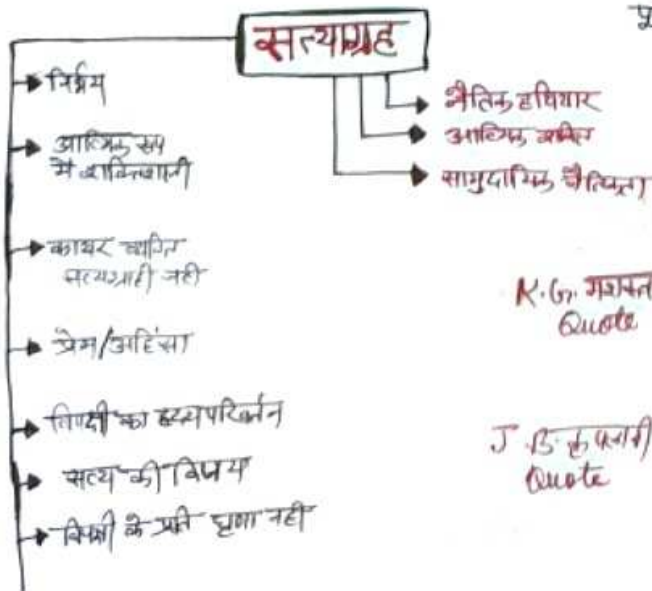 सत्याग्रह
निर्भय
आत्मिक रूप
से शक्तिशाली
कायर व्यक्ति
सत्यग्राही नहीं
प्रेम/अहिंसा
विपक्षी का हृदय परिवर्तन
सत्य की विजय
विपक्षी के प्रति घृणा नहीं
नैतिक हथियार
आत्मिक शक्ति
सामुदायिक नैतिकता
K.G. मशरूवाला
Quote
J.B. कृपलानी
Quote